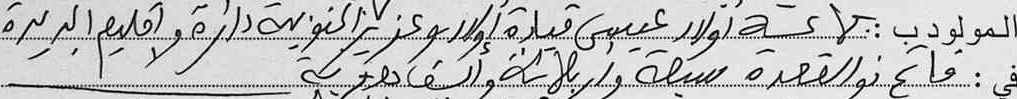 المولود ب : أولاد عيسى قيادة أولاد بوعزيز الجنوبية دائرة وإقليم الجديدة
في : فاتح ذو القعدة سبعة وأربعمائة وألف هجرية